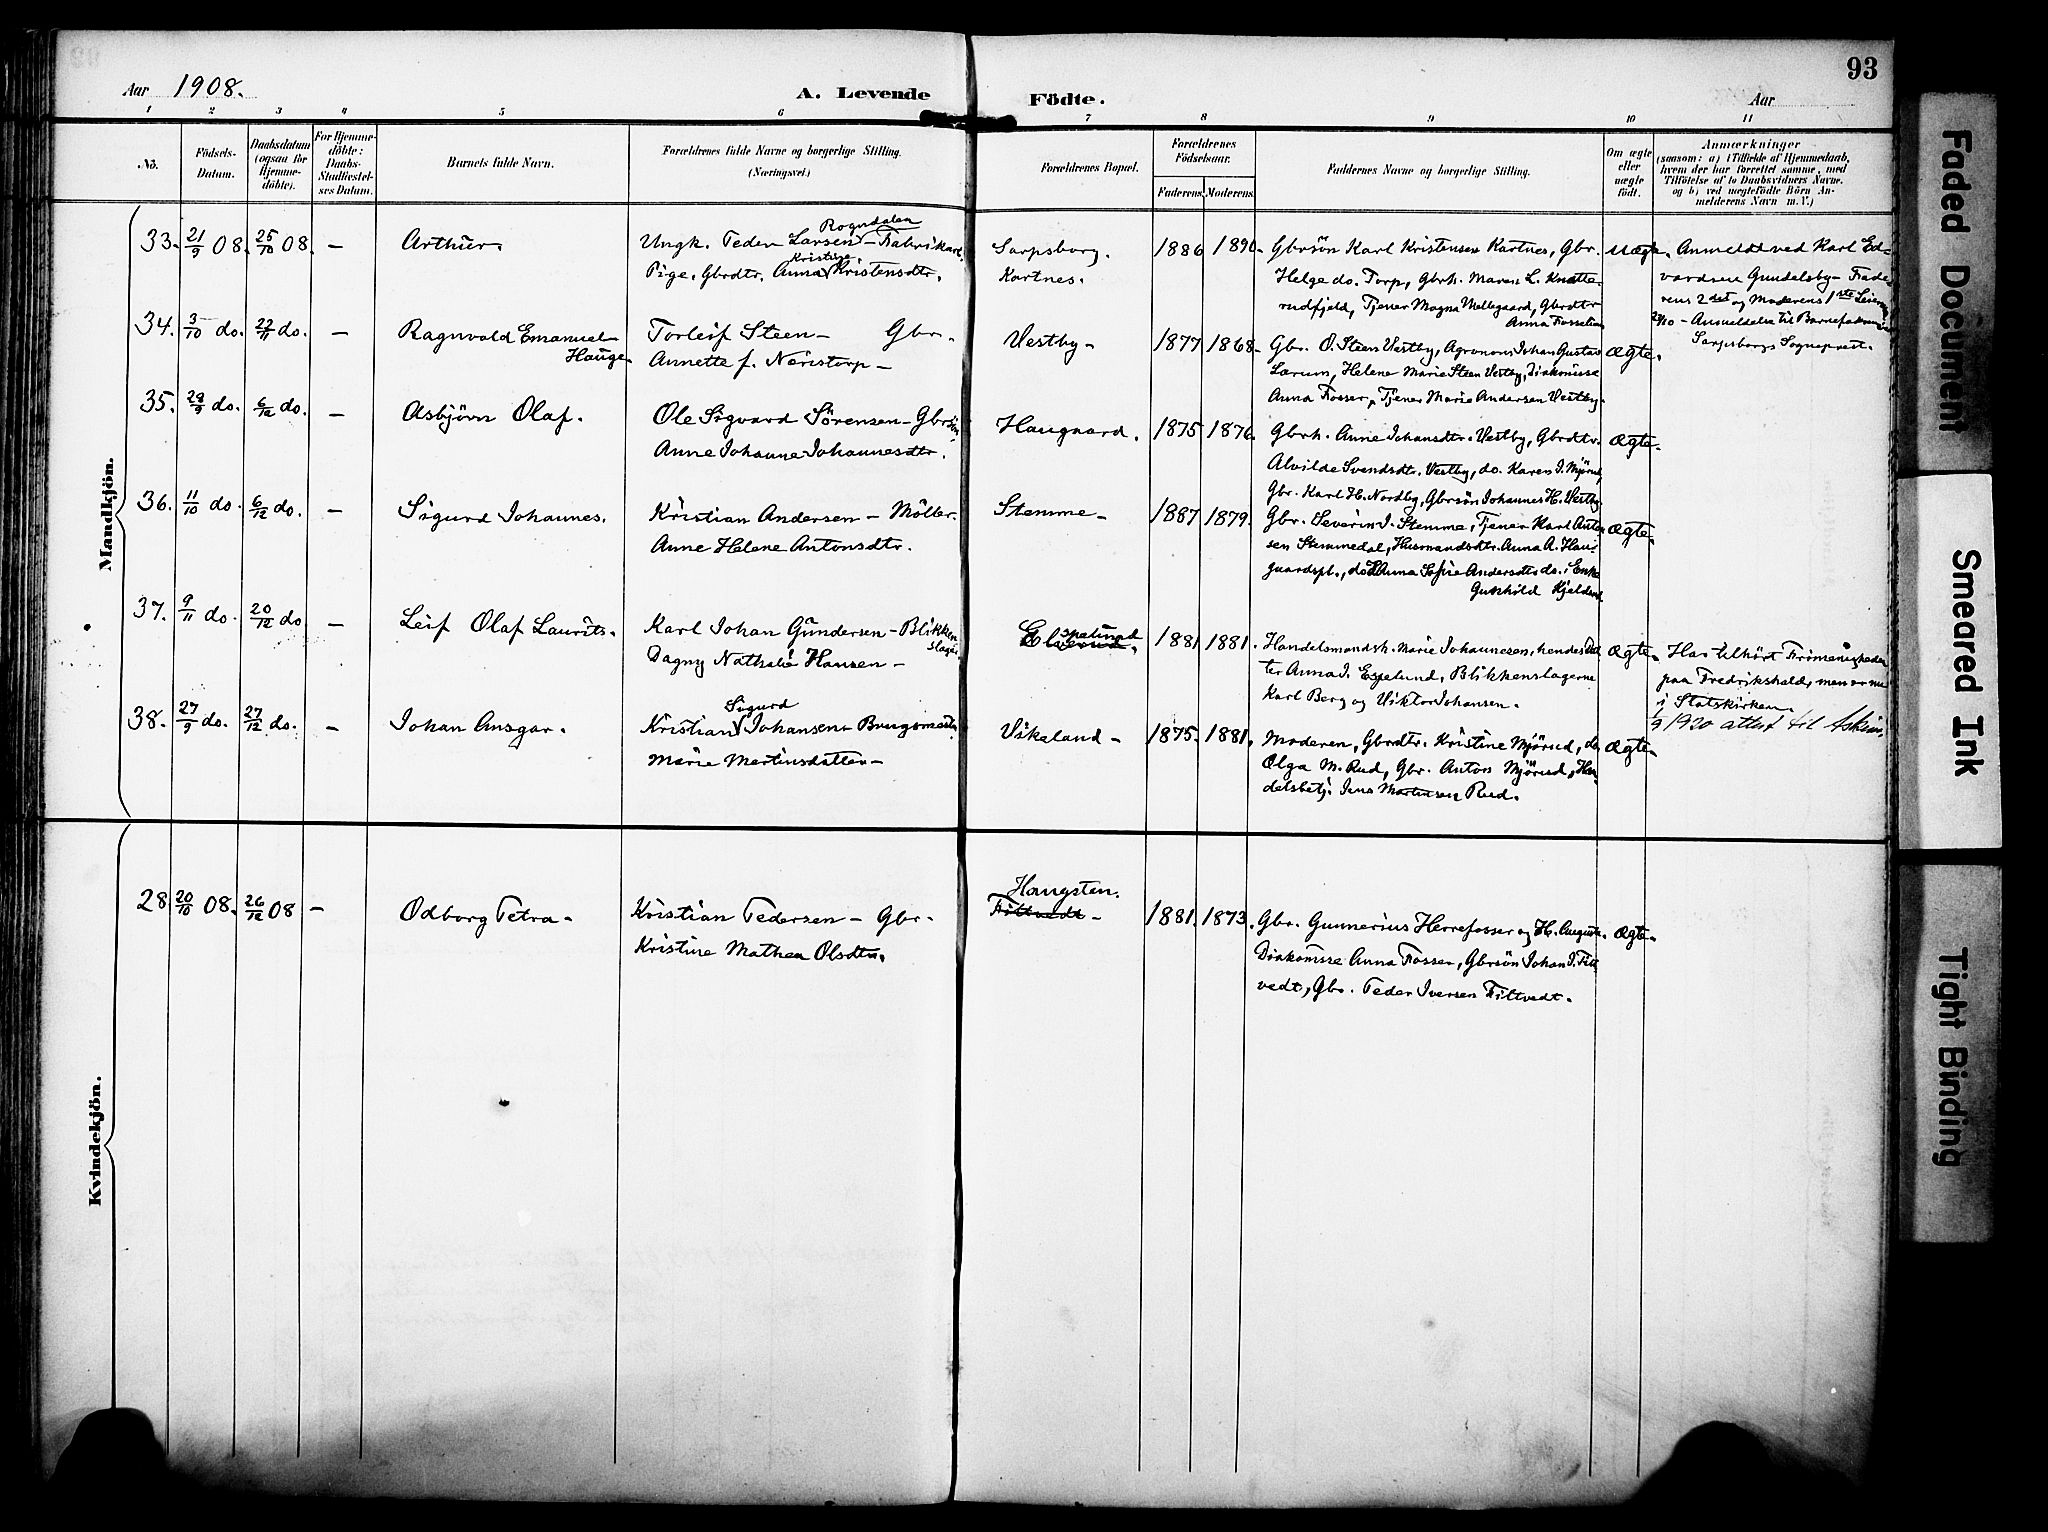 93
Aar 1908.
A. Levende Födte.
Aar
1 2 3 4 5 6 7 8 9 10 11
No.
Födsels-
Datum.
Daabsdatum
(ogsaa för
Hjemme-
döbte).
For Hjemme-
döbte:
Daabs-
Stadfæstel-
ses Datum.
Barnets fulde Navn.
Forældrenes fulde Navne og borgerlige Stilling.
(Næringsvei.)
Forældrenes Bopæl.
Forældrenes
Födselsaar.
Faderens. Moderens.
Faddernes Navne og borgerlige Stilling.
Om ægte
eller
uægte
födt.
Anmærkninger
(saasom: a) i Tilfælde af Hjemmedaab,
hvem der har forrettet samme, med
Tilföielse af to Daabsvidners Navne.
og b) ved uægtefödte Börn An-
melderens Navn m. V.)
Mandkjön.
33. 21/9 08. 25/10 08. – Arthur.
Rogndalen
Ungk. Peder Larsen – Fabrikarb.
Kristine
Pige, Gbrdtr. Anna Kristensdtr.
Sarpsborg.
Kartnes.
1886 1890.
Gbrsön Karl Kristensen Kartnes, Gbr.
Helge do. Torp, Gbrh. Maren L. Knatte-
rudfjeld, Tjener Magna Mellegaard, Gbrdtr
Anna Fosselin
Uægte.
Anmeldt ved Karl Ed-
vardsen Gundelsby – Fade-
rens 2det og Moderens 1ste Leierm.
– Anmeldelse til
Sarpsborgs Sognepræst.
34. 3/10 do. 22/11 do. – Ragnvald Emanuel
Hauge
Torleif Steen – Gbr.
Annette f. Nöristorp –
Vestby –
1877 1868.
Gbr. O. Steen Vestby, Agronom Johan Gustav
Lærum, Helene Marie Steen Vestby, Diakonisse
Anna Fosser, Tjener Marie Andersen Vestby.
Ægte.
35. 29/9 do. 6/12 do. – Asbjörn Olaf.
Ole Sigvard Sörensen – Gbrsön,
Anne Johanne Johannesdtr.
Haugaard.
1875 1876.
Gbrh. Anne Johansdtr. Vestby, Gbrdtr.
Alvilde Svendsdtr. Vestby, do. Karen J. Mjörud,
Gbr. Karl H. Nordby, Gbrsön Johannes H. Vestby
Ægte.
36. 11/10 do. 6/12 do. – Sigurd Johannes.
Kristian Andersen – Möller.
Anne Helene Antonsdtr.
Stemme –
1887 1879.
Gbr. Severin J. Stemme, Tjener Karl Anton-
sen Stemmedal, Husmandsdtr. Anna A. Hau-
gaardspl., do. Anna Sofie Andersdtr. do., Enke
Gunhild Kjeldsrud
Ægte.
37. 9/11 do. 20/12 do – Leif Olaf Laurits.
Karl Johan Gundersen – Blikken-
slager.
Dagny Nathalie Hansen –
Espelund
1881 1881.
Handelsmandsh. Marie Johannesen, hendes Dat-
ter Anna J. Espelund, Blikkenslagerne
Karl Berg og Viktor Johansen.
Ægte –
Har tilhört Frimenigheden
paa Fredrikshald, men er nu
i Statskirken.
1/9 1920 attest til Askim.
38. 27/9 do. 27/12 do. – Johan Ansgar.
Sigurd
Kristian Johansen – Brugsmester
Marie Martinsdatter –
Vikeland –
1875. 1881.
Moderen, Gbrdtr. Kristine Mjörud, do
Olga M. Rud, Gbr. Anton Mjörud, Han-
delsbetj. Jens Martinsen Rud.
Ægte –
Kvindekjön.
28 20/10 08. 26/12 08 – Odborg Petra –
Kristian Pedersen – Gbr.
Kristine Mathea Olsdtr.
Haugsten.
Filtvedt –
1881. 1873.
Gbr. Gunnerius Herrefosser og H. Augusta.
Diakonisse Anna Fosser, Gbrsön Johan J. Filt-
vedt, Gbr. Peder Iversen Filtvedt.
Ægte –
Faded Document
Smeared Ink
Tight Binding